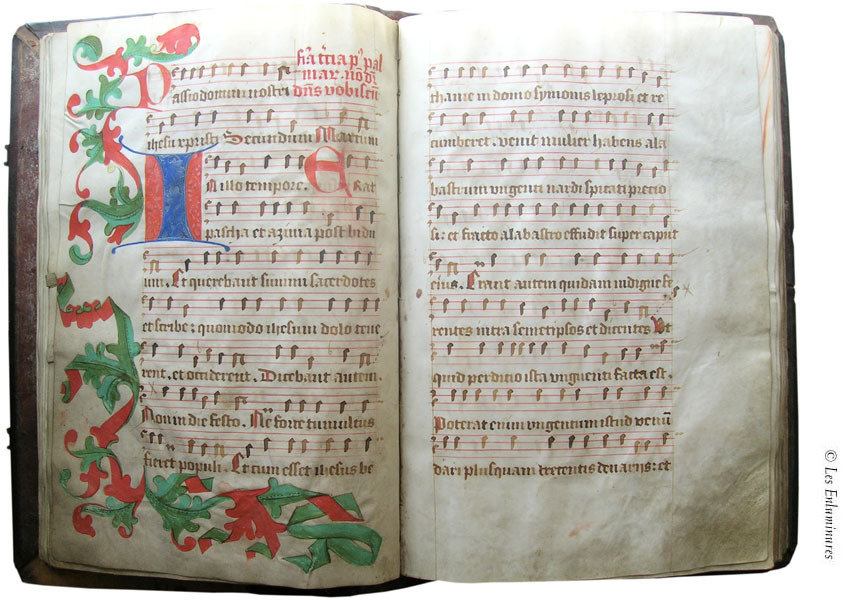 fr̄a t̄cia p' pal
mar. nō dr̄
dn̄s vobiscū
Passio domini nostri
ihesu xpristi Secundum Martum
In illo tempore. Erat
pascha et azima post bidu
um. Et querebant summi sacerdotes
et scribe: quomodo ihesum dolo tene
rent, et occiderent. Dicebant autem.
Non in die festo. Ne forte tumultus
fieret populi. Et cum esset ihesus be
thanie in domo symonis leprosi et re
cumberet. venit mulier habens ala
bastrum ungenti nardi spicati precio
si: et fracto alabastro effudit super caput
eius. Erant autem quidam indigne fe
rentes intra semetipsos et dicentes Ut
quid perditio ista unguenti facta est.
Poterat enim ungentum istud venū
dari plusquam trecentis denariis: et
© Les Enluminures